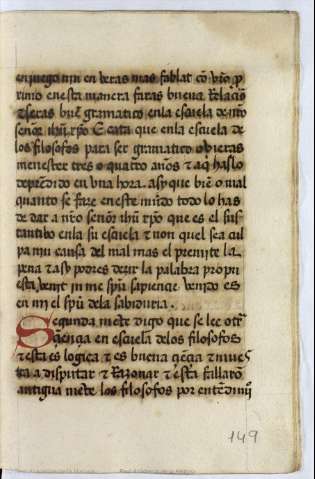 en juego nin en veras mas fablar cõ vr̃o p̱
ximo en esta manera faras buena Relaciõ
⁊ seras buẽ gramatico en la escuela de nr̃o
señor ihũ xp̃o E cata que en la escuela de
los filosofos para ser gramatico ovieras
menester tres o quatro años ⁊ aq̃ haslo
deprẽdido en una hora. asy que biẽ o mal
quanto se faze en este mũdo todo lo has
de dar a nr̃o señor ihũ xp̃o que es el sus
tantivo en la su escuela ⁊ non quel sea cul
pa nin causa del mal mas el premite la
pena ⁊ asy podres dezir la palabra propue
esta venit in me spũ sapiencie venido es
en mi el spũ de la sabiduria.
Segunda mẽte digo que se lee otr̃
sçiençia en escuela de los filosofos
⁊ esta es logica ⁊ es buena çiẽçia ⁊ mues
tra a disputar ⁊ Razonar ⁊ esta fallarõ
antigua mẽte los filosofos por entẽdimiẽ
149